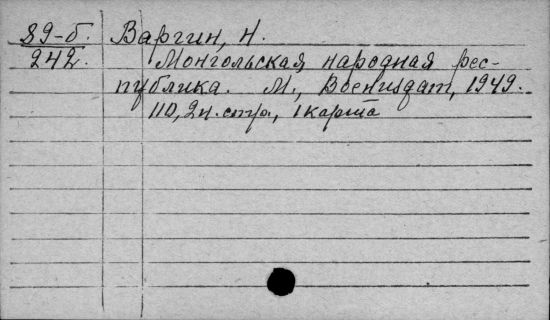 89-б. Варгин, Н.
242. Монгольская народная рес-
публика. М., Воениздат, 1949.
110, 2н. стр., 1 карта